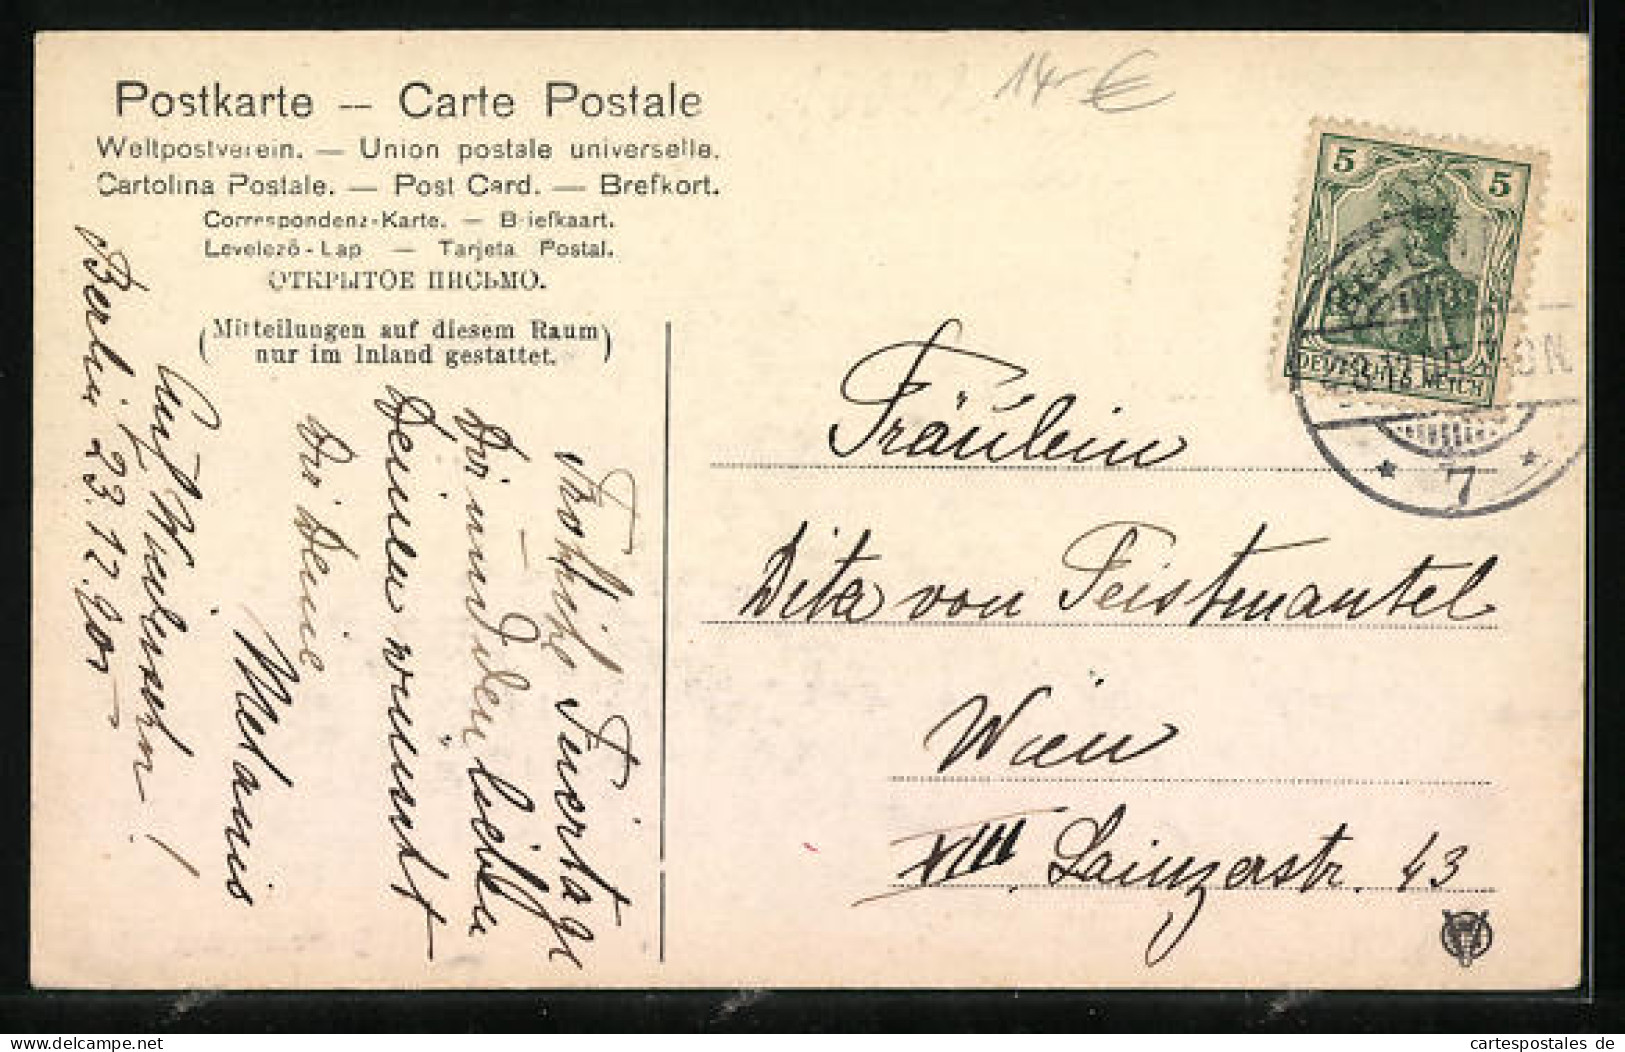 14,- €
Postkarte -- Carte Postale
Weltpostverein. — Union postale universelle.
Cartolina Postale. — Post Card. — Brefkort.
Correspondenz-Karte. — Briefkaart.
Levelező-Lap — Tarjeta Postal.
ОТКРЫТОЕ ПИСЬМО.
(Mitteilungen auf diesem Raum
nur im Inland gestattet.)
Fröhliche Feiertage
Dir und den lieben
Deinen wünscht
Dir deine
Melanie
Auf Wiedersehn!
Berlin 23.12.
5 5
DEUTSCHES REICH
BERLIN
7
Fräulein
Dita von Feistmantel
Wien
XIII. Lainzerstr. 43
cartespostales de